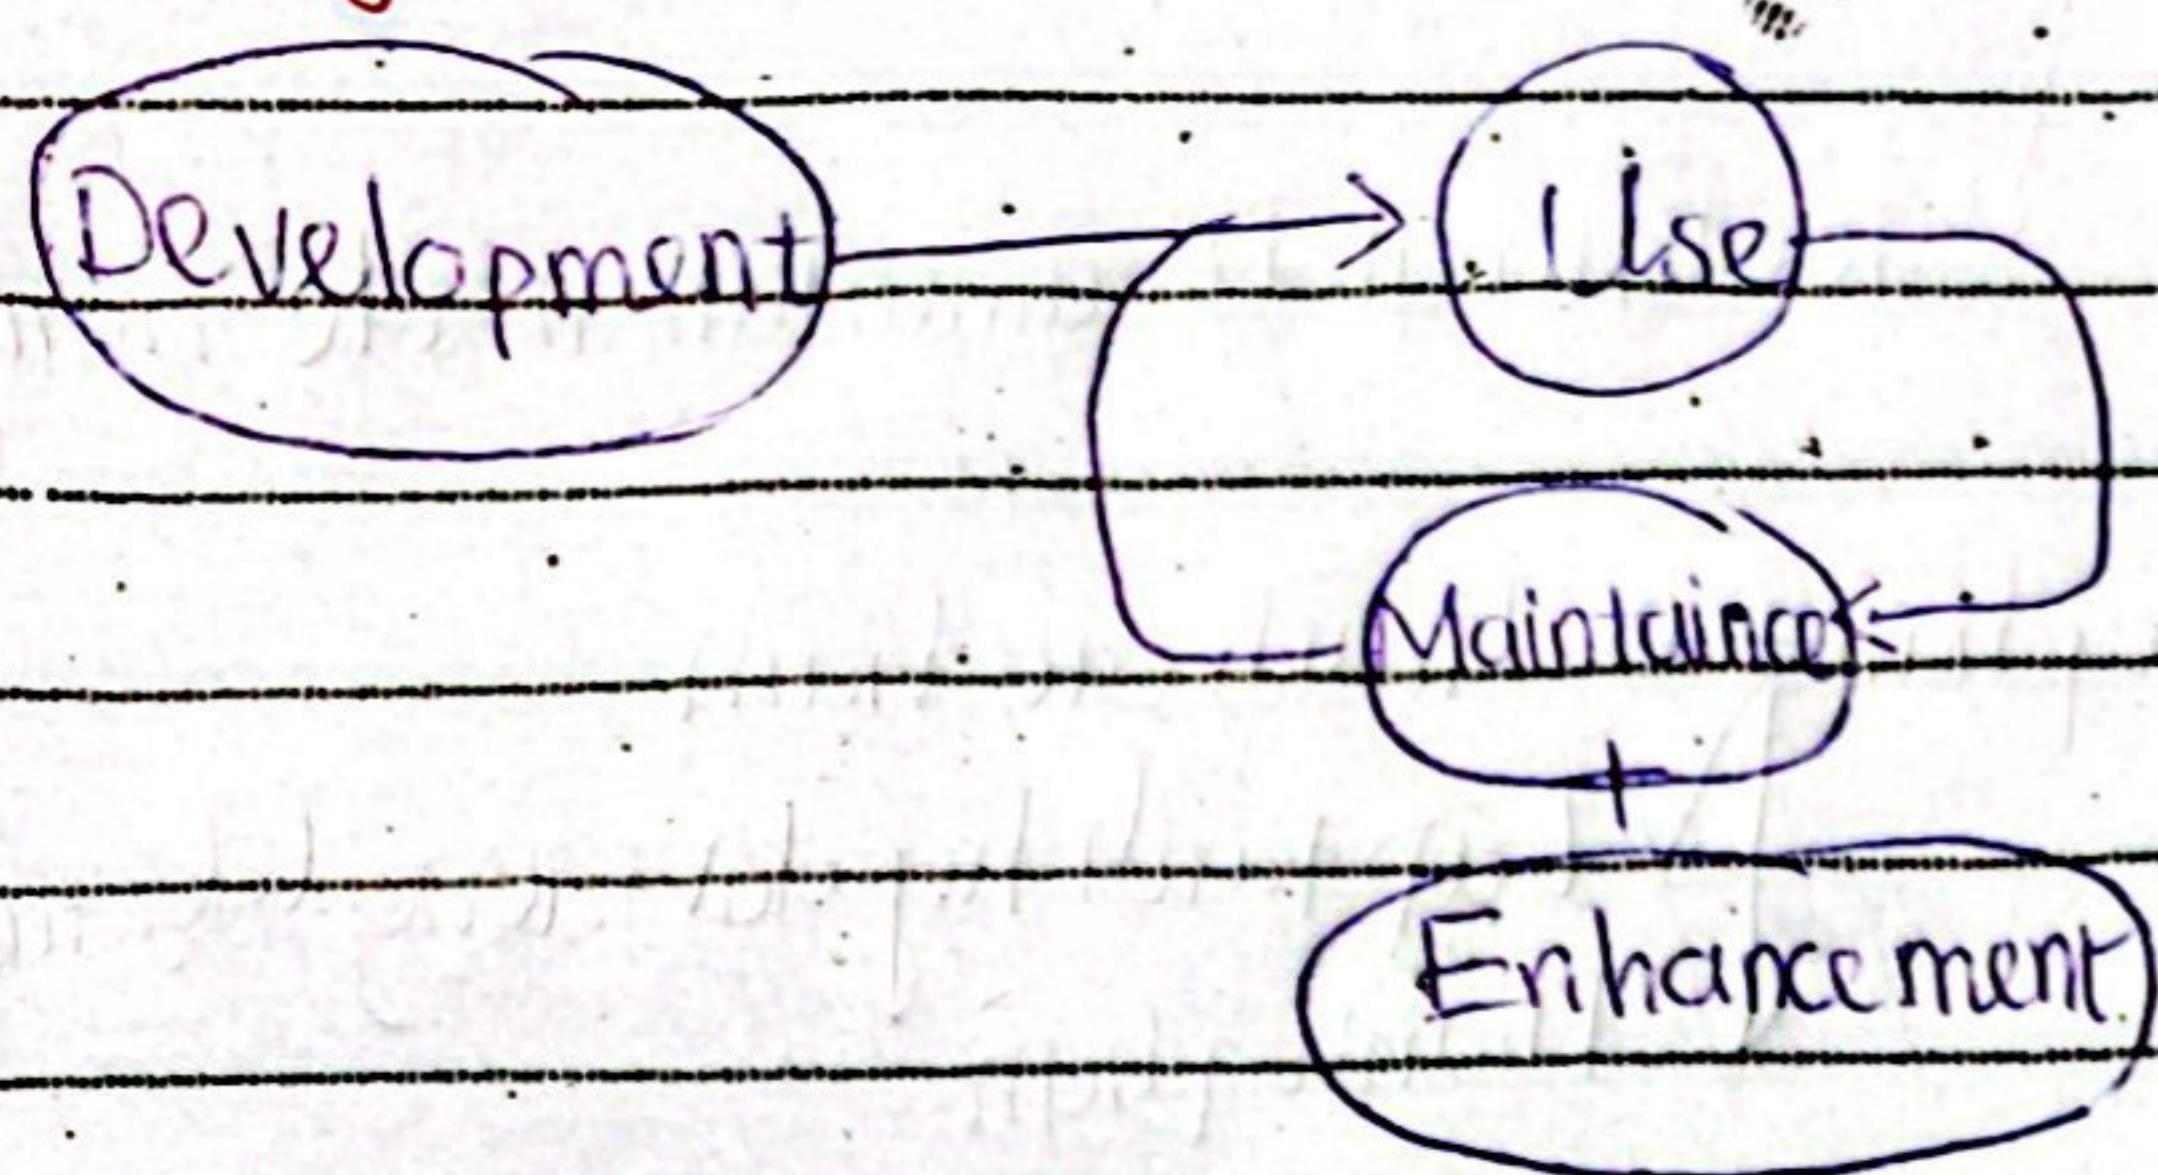 Development
Use
Maintaince
Enhancement